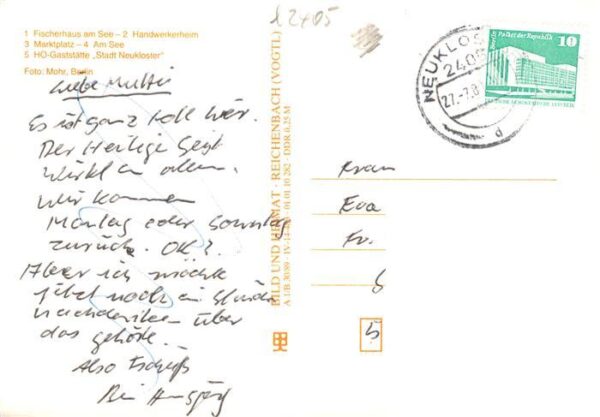 2405
1 Fischerhaus am See – 2 Handwerkerheim
3 Marktplatz – 4 Am See
5 HO-Gaststätte „Stadt Neukloster"
Foto: Mohr, Berlin
Liebe Mutti
Es ist ganz toll hier.
Der Heilige Geist
wirkt in allen.
Wir kommen
Montag oder Sonntag
zurück. OK?
Aber ich möchte
jetzt noch ein
nachdenken über
das gehörte.
Also Tschüß
Dein
BILD UND HEIMAT · REICHENBACH (VOGTL)
A 1/B 30/89 · IV-14- 01 01 10 282 · DDR 0,25 M
NEUKLOS
2405
27.-7.8
d
Berlin Palast der Republik
10
Eva
Fr.
5